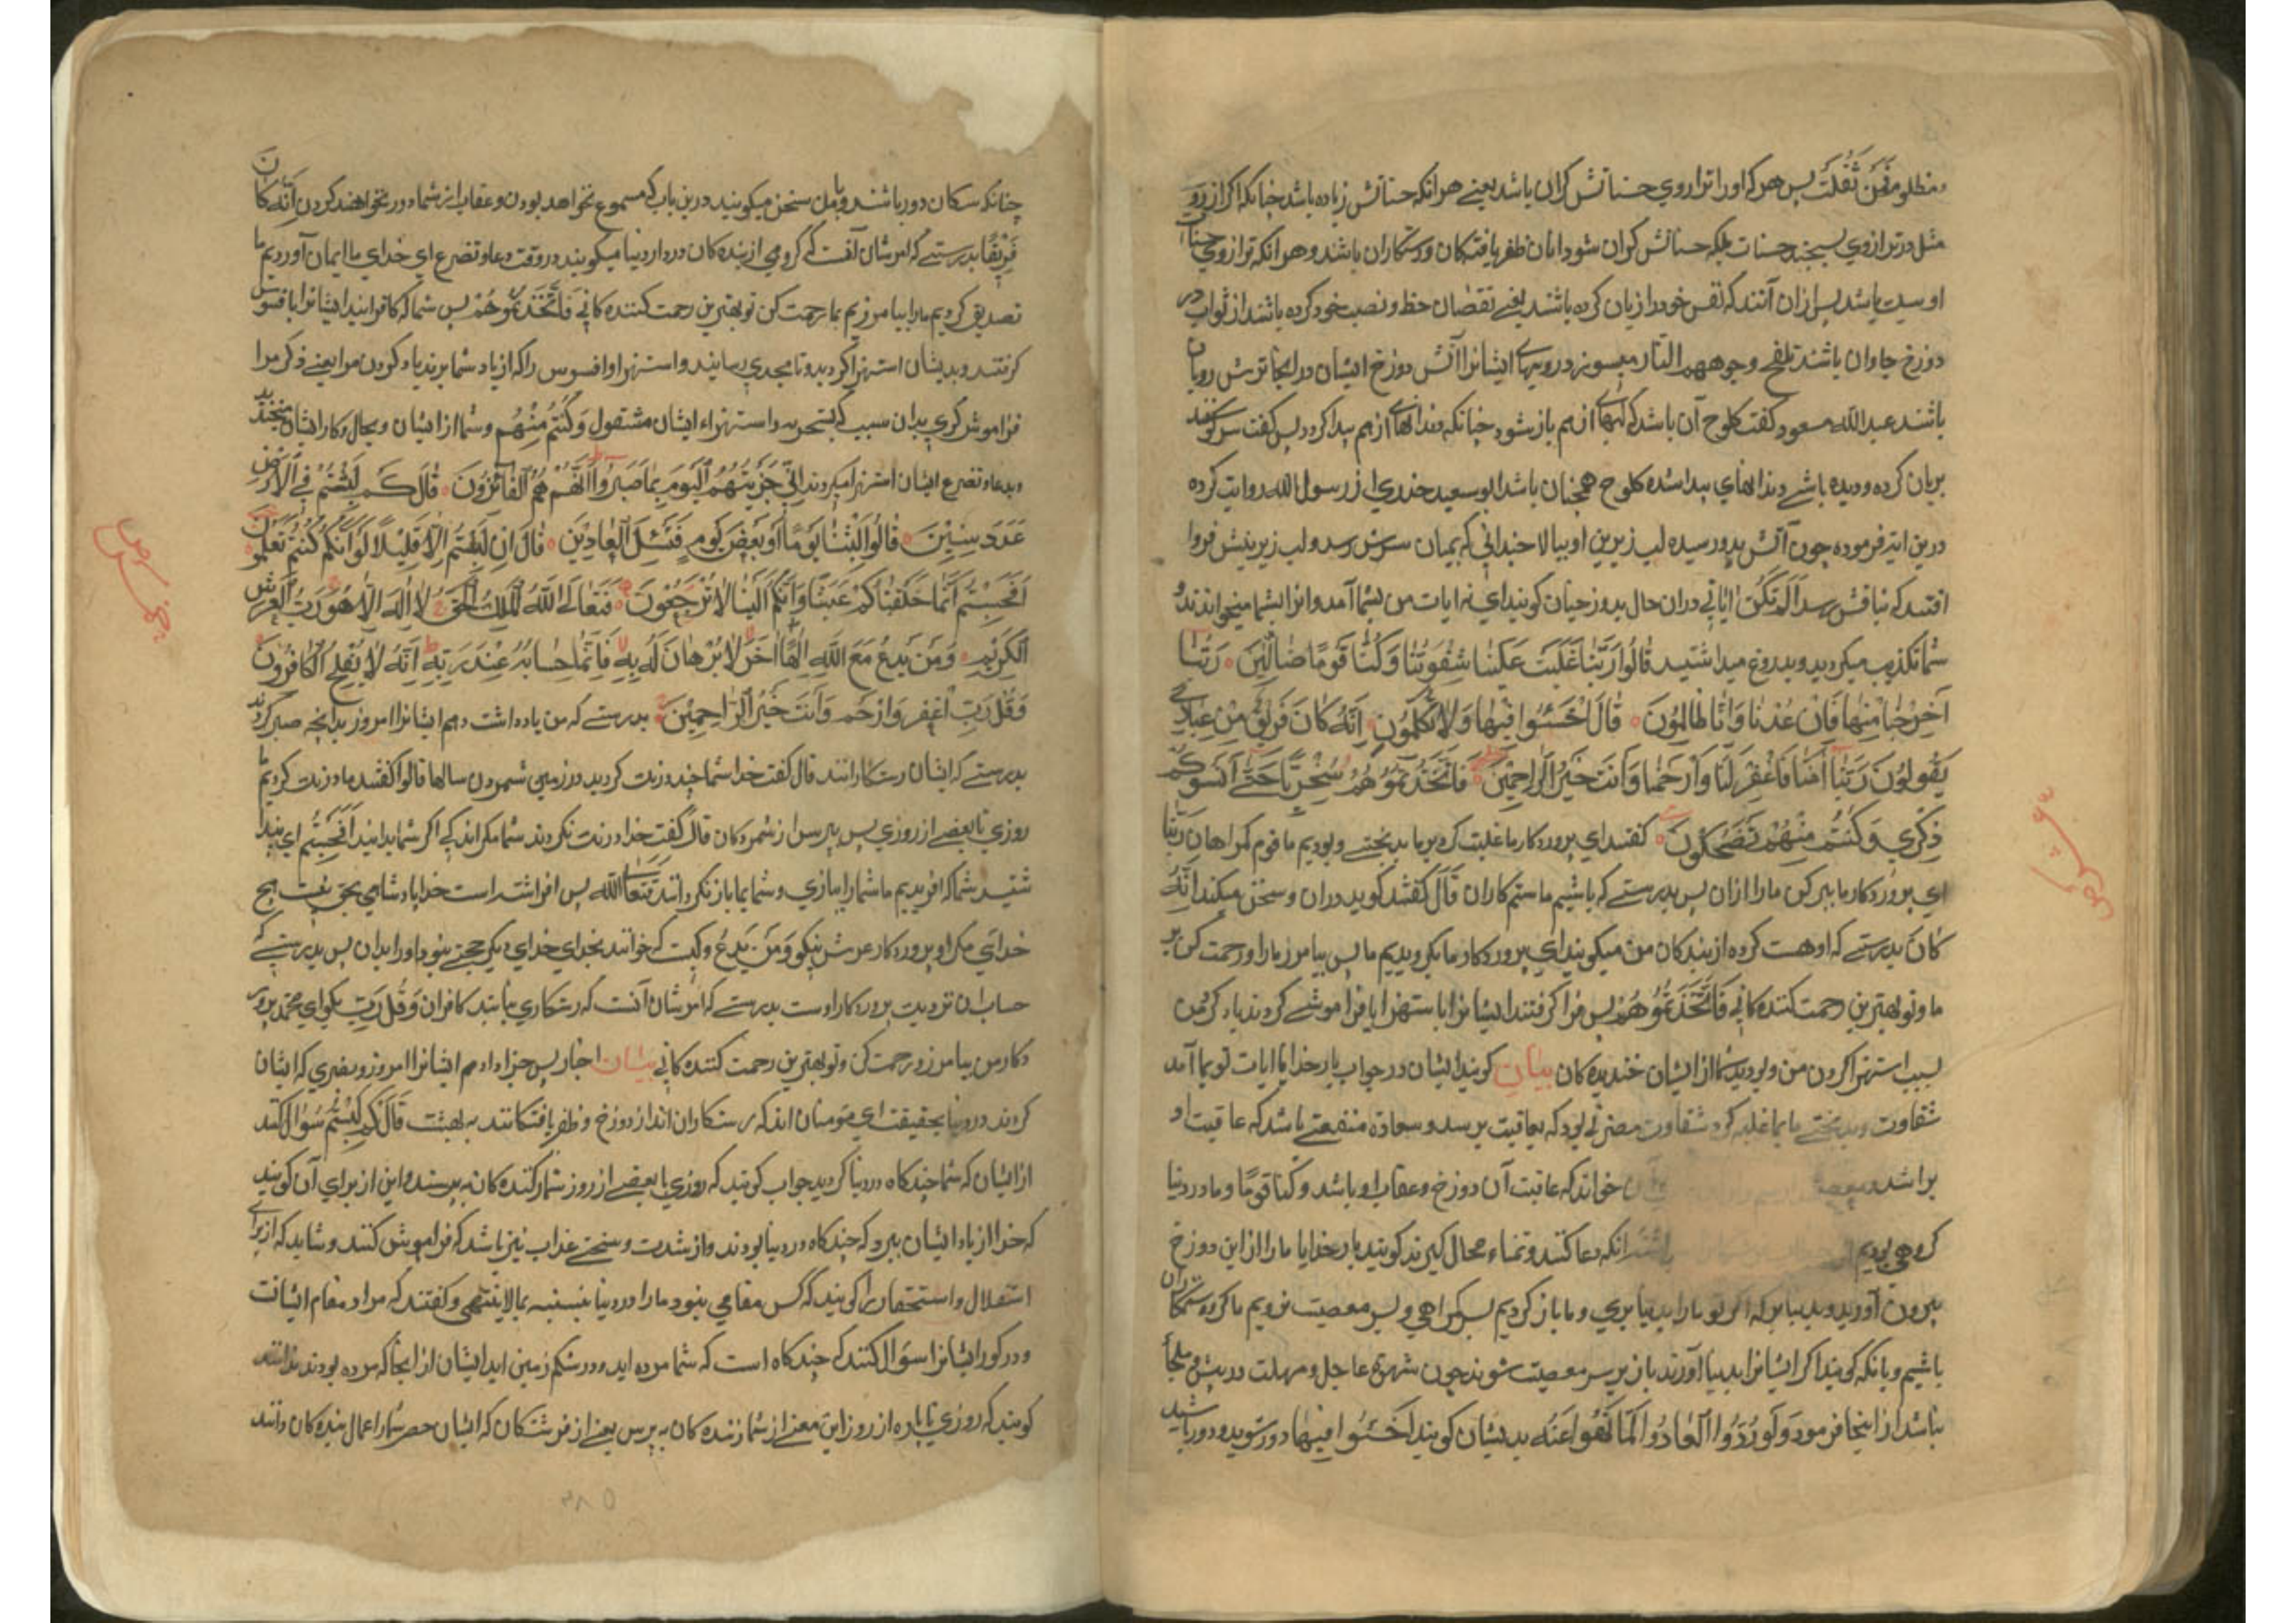 فمن ثقلت پس هر که او را ترازوي حسناتش کران باشد یعنے هرانکه حسناتش زیاده باشد چنانکه اکر از روی
مثل در ترازوي بسنجند حسنات بلکه حسناتش کران شود ایشان ظفر یافتکان ورستکاران باشند وهرانکه ترازوي حسنات
او سبک باشد پس ازان آنند که نفس خود را زیان کرده باشند یعنے نقصان حظ ونصیب خود کرده باشند از ثواب در
دوزخ جاودان باشند تلفح وجوههم النار میسوزد رویهاے ایشانرا آتش دوزخ ایشان در انجا ترش رویان
باشند عبد الله مسعود کفت کلوح آن باشد که لبهاے از هم باز شود چنانکه دندانهاے از هم پیدا کردد پس کفت سر کوسفند
بریان کرده دیده باشے دندانهاي پیدا شده کلوح همچنان باشد ابو سعید خدري از رسول الله روایت کرده
درین ایه فرموده چون آتش بدو رسیده لب زیرین او ببالا چندانی که بمیان سرش رسد ولب زیرینش فروا
افتد که بنافش رسد اَلَمْ تَکُنْ اٰیاتي دران حال بدوزخیان کویند اي نه ایات من بشما آمد وانرا بشما میخواندند و
شما تکذیب میکردید وبدروغ میداشتید قٰالُوا رَبَّنٰا غَلَبَتْ عَلَیْنٰا شِقْوَتُنٰا وَکُنّٰا قَوْمًا ضٰالّٖینَ رَبَّنٰا
اَخْرِجْنٰا مِنْهٰا فَاِنْ عُدْنٰا فَاِنّٰا ظٰالِمُونَ قٰالَ اخْسَئُوا فِیْهٰا وَلاٰ تُکَلِّمُونِ اِنَّهُ کٰانَ فَرِیْقٌ مِنْ عِبٰادِي
یَقُولُونَ رَبَّنٰا اٰمَنّٰا فَاغْفِرْ لَنٰا وَارْحَمْنٰا وَاَنْتَ خَیْرُ الرّٰاحِمِیْنَ فَاتَّخَذْتُمُوهُمْ سِخْرِیًّا حَتّٰی اَنْسَوْکُمْ
ذِکْرِي وَکُنْتُمْ مِنْهُمْ تَضْحَکُونَ کفتند اي پروردکار ما غلبت کرد بر ما بدبختے وبودیم ما قوم کمراهان رَبَّنٰا
اي پروردکار ما ببر کن ما را ازان پس بدرستے که باشیم ما ستم کاران قٰالَ کفتند کوید دران وسخن میکند اِنَّهُ
کٰانَ بدرستے که اوهست کرده از بندکان من میکویند اي پروردکار ما بکرویدیم ما پس بیامرز ما را ورحمت کن بر
ما وتو بهترین رحمت کننده کانی فَاتَّخَذْتُمُوهُمْ پس فرا کرفتند ایشانرا باستهزا یا فراموشے کردند یاد کردن
بسبب استهزا کردن من وبودید شما از ایشان خندیده کان بیان کویند ایشان در جواب بار خدایا ایات تو بما آمد
شقاوت وبدبختے ما بما غلبه کرد شقاوت مضرتی بود که بعاقبت برسد وسعادة منفعتے باشد که عاقبت او
خواند که عاقبت آن دوزخ وعقاب او باشد وکنا قومًا وما در دنیا
کروهي بودیم انکه دعا کنند وتمناء محال کیرند کویند بار خدایا ما را ازین دوزخ
بیرون آور وبدنیا بر که اکر تو ما را بدنیا بري وما باز کردیم بسر کمراهي وبسر معصیت نرویم ما کروه ستمکاران
باشیم وبانکه کویند اکر ایشانرا بدنیا آورند باز بر سر معصیت شوند چون شهوة عاجل ومهلت در پیش وملجأ
نباشد ازاینجا فرمود وَلَوْ رُدُّوا لَعٰادُوا لِمٰا نُهُوا عَنْهُ بدیشان کویند اِخْسَئُوا فِیْهٰا دور شوید ودور باشید
چنانکه سکان دور باشند وبا من سخن میکویند درین باب که مسموع نخواهد بودن وعقاب از شما دور نخواهند کردن اِنَّهُ کٰانَ
فَرِیْقٌ بدرستے که امر شان آنست که کروهي از بنده کان در دار دنیا میکویند در وقت دعا وتضرع اي خداي ما ایمان آوردیم ما
تصدیق کردیم ما را بیامرز بما رحمت کن تو بهترین رحمت کننده کانی فَاتَّخَذْتُمُوهُمْ پس شما که کافرانید ایشانرا بافسوس
کرفتند وبدیشان استهزا کردید وتا بحدي رسانیدند واستهزا وافسوس را که از یاد شما برند یاد کردن مرا یعنے ذکر مرا
فراموش کردي بدان سبب که بتسخر به واستهزاء ایشان مشغول وَکُنْتُمْ مِنْهُمْ وشما از ایشان وبحال وکار ایشان بخندید
وبدعا وتضرع ایشان استهزا میکردند اِنِّي جَزَیْتُهُمُ الْیَوْمَ بِمٰا صَبَرُوا اَنَّهُمْ هُمُ الْفٰائِزُونَ قٰالَ کَمْ لَبِثْتُمْ فِي الْاَرْضِ
عَدَدَ سِنِیْنَ قٰالُوا لَبِثْنٰا یَوْمًا اَوْ بَعْضَ یَوْمٍ فَسْئَلِ الْعٰادِّیْنَ قٰالَ اِنْ لَبِثْتُمْ اِلاّٰ قَلِیْلًا لَوْ اَنَّکُمْ کُنْتُمْ تَعْلَمُونَ
اَفَحَسِبْتُمْ اَنَّمٰا خَلَقْنٰاکُمْ عَبَثًا وَاَنَّکُمْ اِلَیْنٰا لاٰ تُرْجَعُونَ فَتَعٰالَی اللّٰهُ الْمَلِكُ الْحَقُّ لاٰ اِلٰهَ اِلاّٰ هُوَ رَبُّ الْعَرْشِ
الْکَرِیْمِ وَمَنْ یَدْعُ مَعَ اللّٰهِ اِلٰهًا اٰخَرَ لاٰ بُرْهٰانَ لَهُ بِهِ فَاِنَّمٰا حِسٰابُهُ عِنْدَ رَبِّهِ اِنَّهُ لاٰ یُفْلِحُ الْکٰافِرُونَ
وَقُلْ رَبِّ اغْفِرْ وَارْحَمْ وَاَنْتَ خَیْرُ الرّٰاحِمِیْنَ بدرستے که من پاداشت دهم ایشانرا امروز بدانچه صبر کردند
بدرستے که ایشان رستکارانند قال کفت خدا شما چند درنت کردید در زمین شمردن سالها قالوا کفتند ما درنت کردیم
روزي یا بعضے از روزي پس بپرس از شمرده کان قال کفت خدا درنت نکردند شما مکر اندکے اکر شما بدانید اَفَحَسِبْتُمْ اي پندا
شتید شما که افریدیم ما شما را ببازي وشما بما باز نکردانند فَتَعٰالَی اللّٰه پس افراشته است خدا پادشاهي بحق نیست هیچ
خداي مکر او پروردکار عرش نیکو وَمَنْ یَدْعُ وکیست که خوانند بخداي خداي دیکر حجتے نبود اورا بدان پس بدرستے که
حساب ان نزدیت پروردکار اوست بدرستے که امر شان آنست که رستکاري نیابند کافران وَقُلْ رَبِّ بکو اي محمد پرور
دکار من بیامرز ورحمت کن وتو بهترین رحمت کننده کانی بیان اخبار پس جزا دادم ایشانرا امروز وبصبري که ایشان
کردند در دنیا بحقیقت اي مومنان اند که رستکاران اند از دوزخ وظفر یافتکانند به بهشت قٰالَ کَمْ لَبِثْتُمْ سؤال کند
از ایشان که شما چند کاه در دنیا کردید جواب کویند که روزي یا بعضے از روز شمار کننده کان بپرسند واین از براي آن کویند
که خدا از یاد ایشان ببرد که چند کاه در دنیا بودند واز شدت وسختے عذاب نیز باشد که فراموش کنند وشاید که از براے
استقلال واستحقار را کویند که کس مقامي نبود ما را در دنیا بنسبه بما لا ینتهی وکفتند که مراد مقام ایشانست
در کور ایشانرا سوال کنند که چند کاه است که شما مرده اید ودر شکم زمین اید ایشان از انجا که مرده بودند ندانند
کویند که روزي یا پاره از روز این معنے از شمارنده کان بپرس یعنے از فرشتکان که ایشان حصر شمار اعمال بنده کان دانند